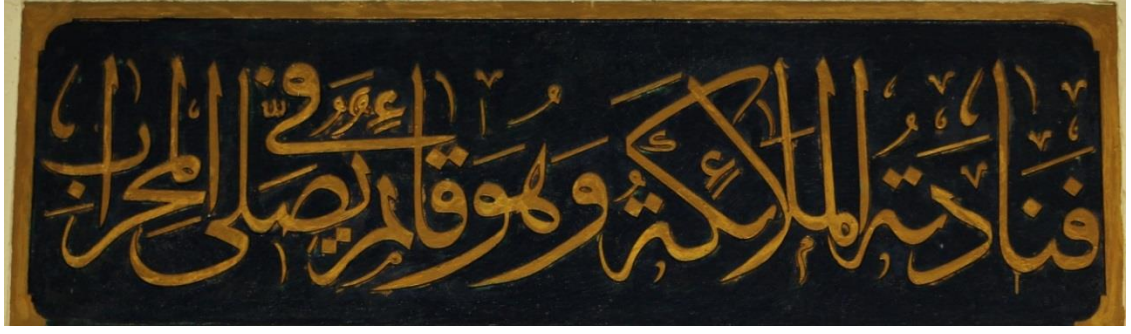 فَنَادَتْهُ الْمَلَائِكَةُ وَهُوَ قَائِمٌ يُصَلِّى فِي الْمِحْرَابِ